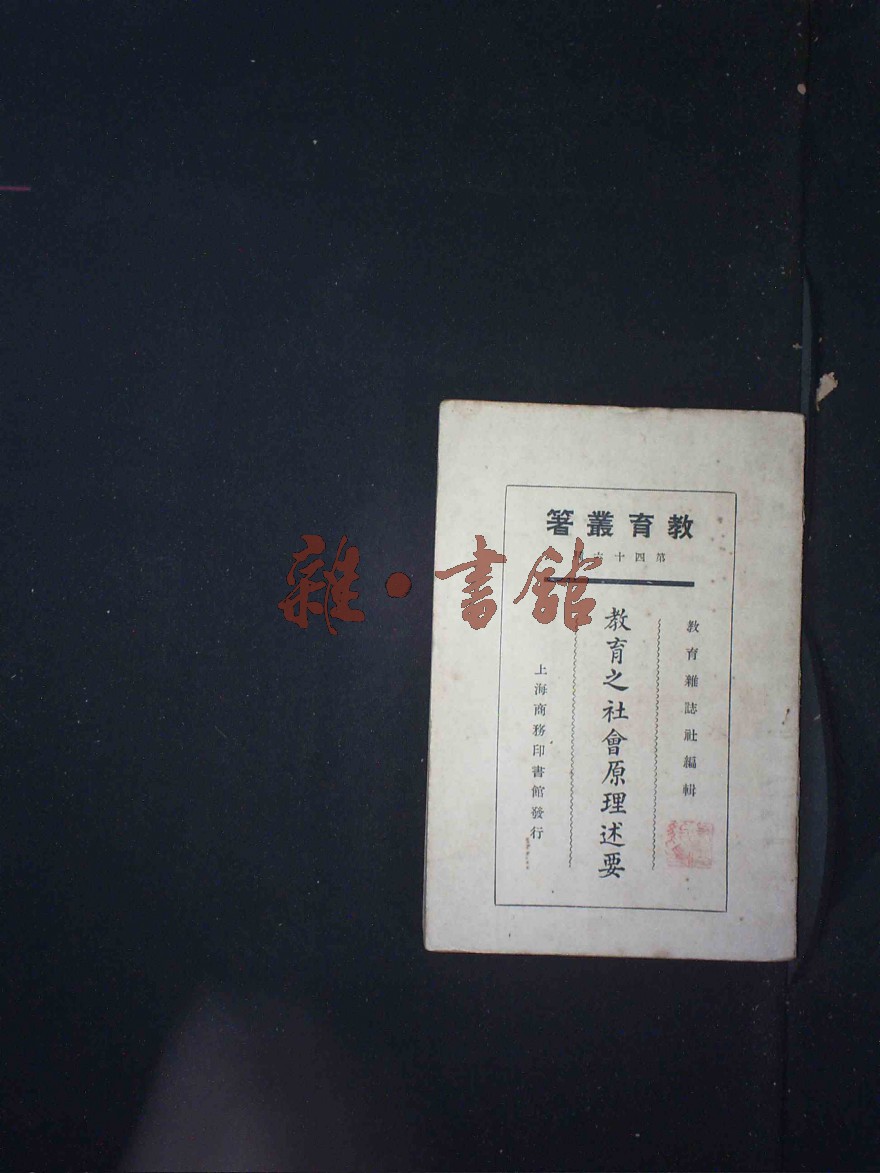 教育叢著
第四十六種
教育雜誌社編輯
教育之社會原理述要
上海商務印書館發行
雜·書館